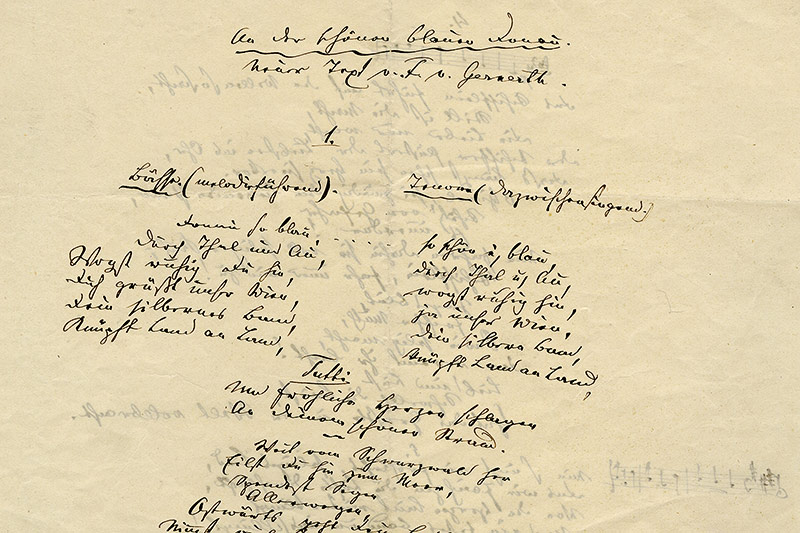 An der schönen blauen Donau.
Neuer Text v. F. v. Gernerth.
1.
Bässe. (melodieführend).
Tenöre (dazwischensingend.)
Donau so blau,
so schön u. blau,
durch Thal und Au,
durch Thal u. Au,
Wogst ruhig du hin,
wogst ruhig hin,
Dich grüßt unser Wien,
ja unser Wien,
Dein silbernes Band,
Dein silbern Band,
Knüpft Land an Land,
Knüpft Land an Land,
Tutti
Und fröhliche Herzen schlagen
An deinem schönen Strand.
Weit vom Schwarzwald her
Eilst du hin zum Meer,
Spendest Segen
Allerwegen,
Ostwärts geht dein